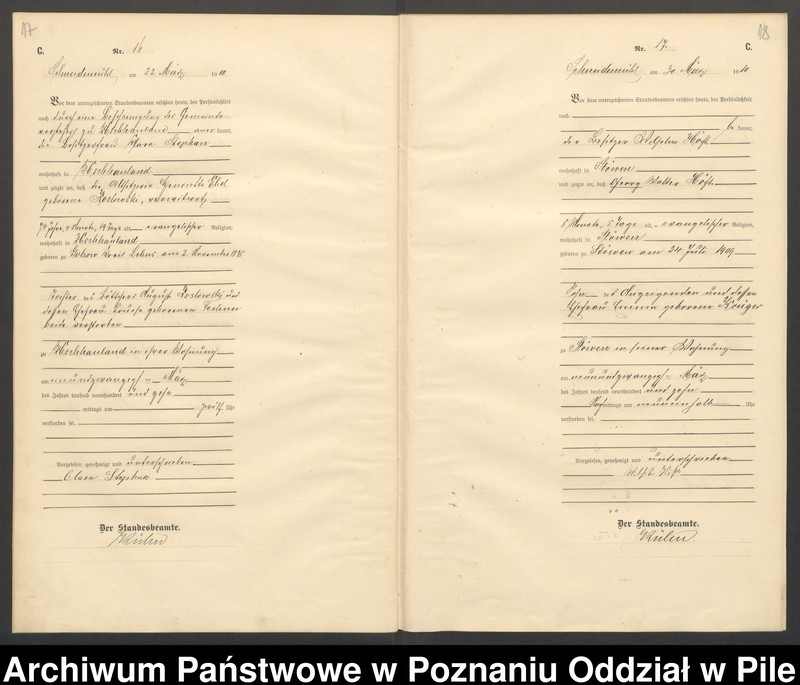 17
C.
Nr. 16
Schneidemühl am 22. März 1910
Vor dem unterzeichneten Standesbeamten erschien heute, der Persönlichkeit
nach durch eine Bescheinigung des Gemeinde-
vorstehers zu kannt,
die Besitzerfrau Clara Stephan
wohnhaft in
und zeigte an, daß die Altsitzerin
geborene verwitwet,
Jahre, 4 Monate, 19 Tage alt, evangelischer Religion,
wohnhaft in
geboren zu Kreis Lebus am 2. November
Tochter des Böttchers August und
dessen Ehefrau Louise geborenen
beide verstorben
zu in ihrer Wohnung
am März
des Jahres tausend neunhundert und zehn
mittags um zwölf Uhr
verstorben sei.
Vorgelesen, genehmigt und unterschrieben
Clara Stephan
Der Standesbeamte.
18
Nr. 17
C.
Schneidemühl am 30. März 1910
Vor dem unterzeichneten Standesbeamten erschien heute, der Persönlichkeit
nach
be kannt,
der Besitzer Wilhelm Höft
wohnhaft in Stöwen
und zeigte an, daß Georg Walter Höft
8 Monate, 5 Tage alt, evangelischer Religion,
wohnhaft in Stöwen
geboren zu Stöwen am 24. Juli 1909
Sohn des Anzeigenden und dessen
Ehefrau geborene Krüger
zu Stöwen in seiner Wohnung
am neunundzwanzigsten März
des Jahres tausend neunhundert und zehn
mittags um neuneinhalb Uhr
verstorben sei.
Vorgelesen, genehmigt und unterschrieben
Wilhelm Höft
Der Standesbeamte.
Archiwum Państwowe w Poznaniu Oddział w Pile